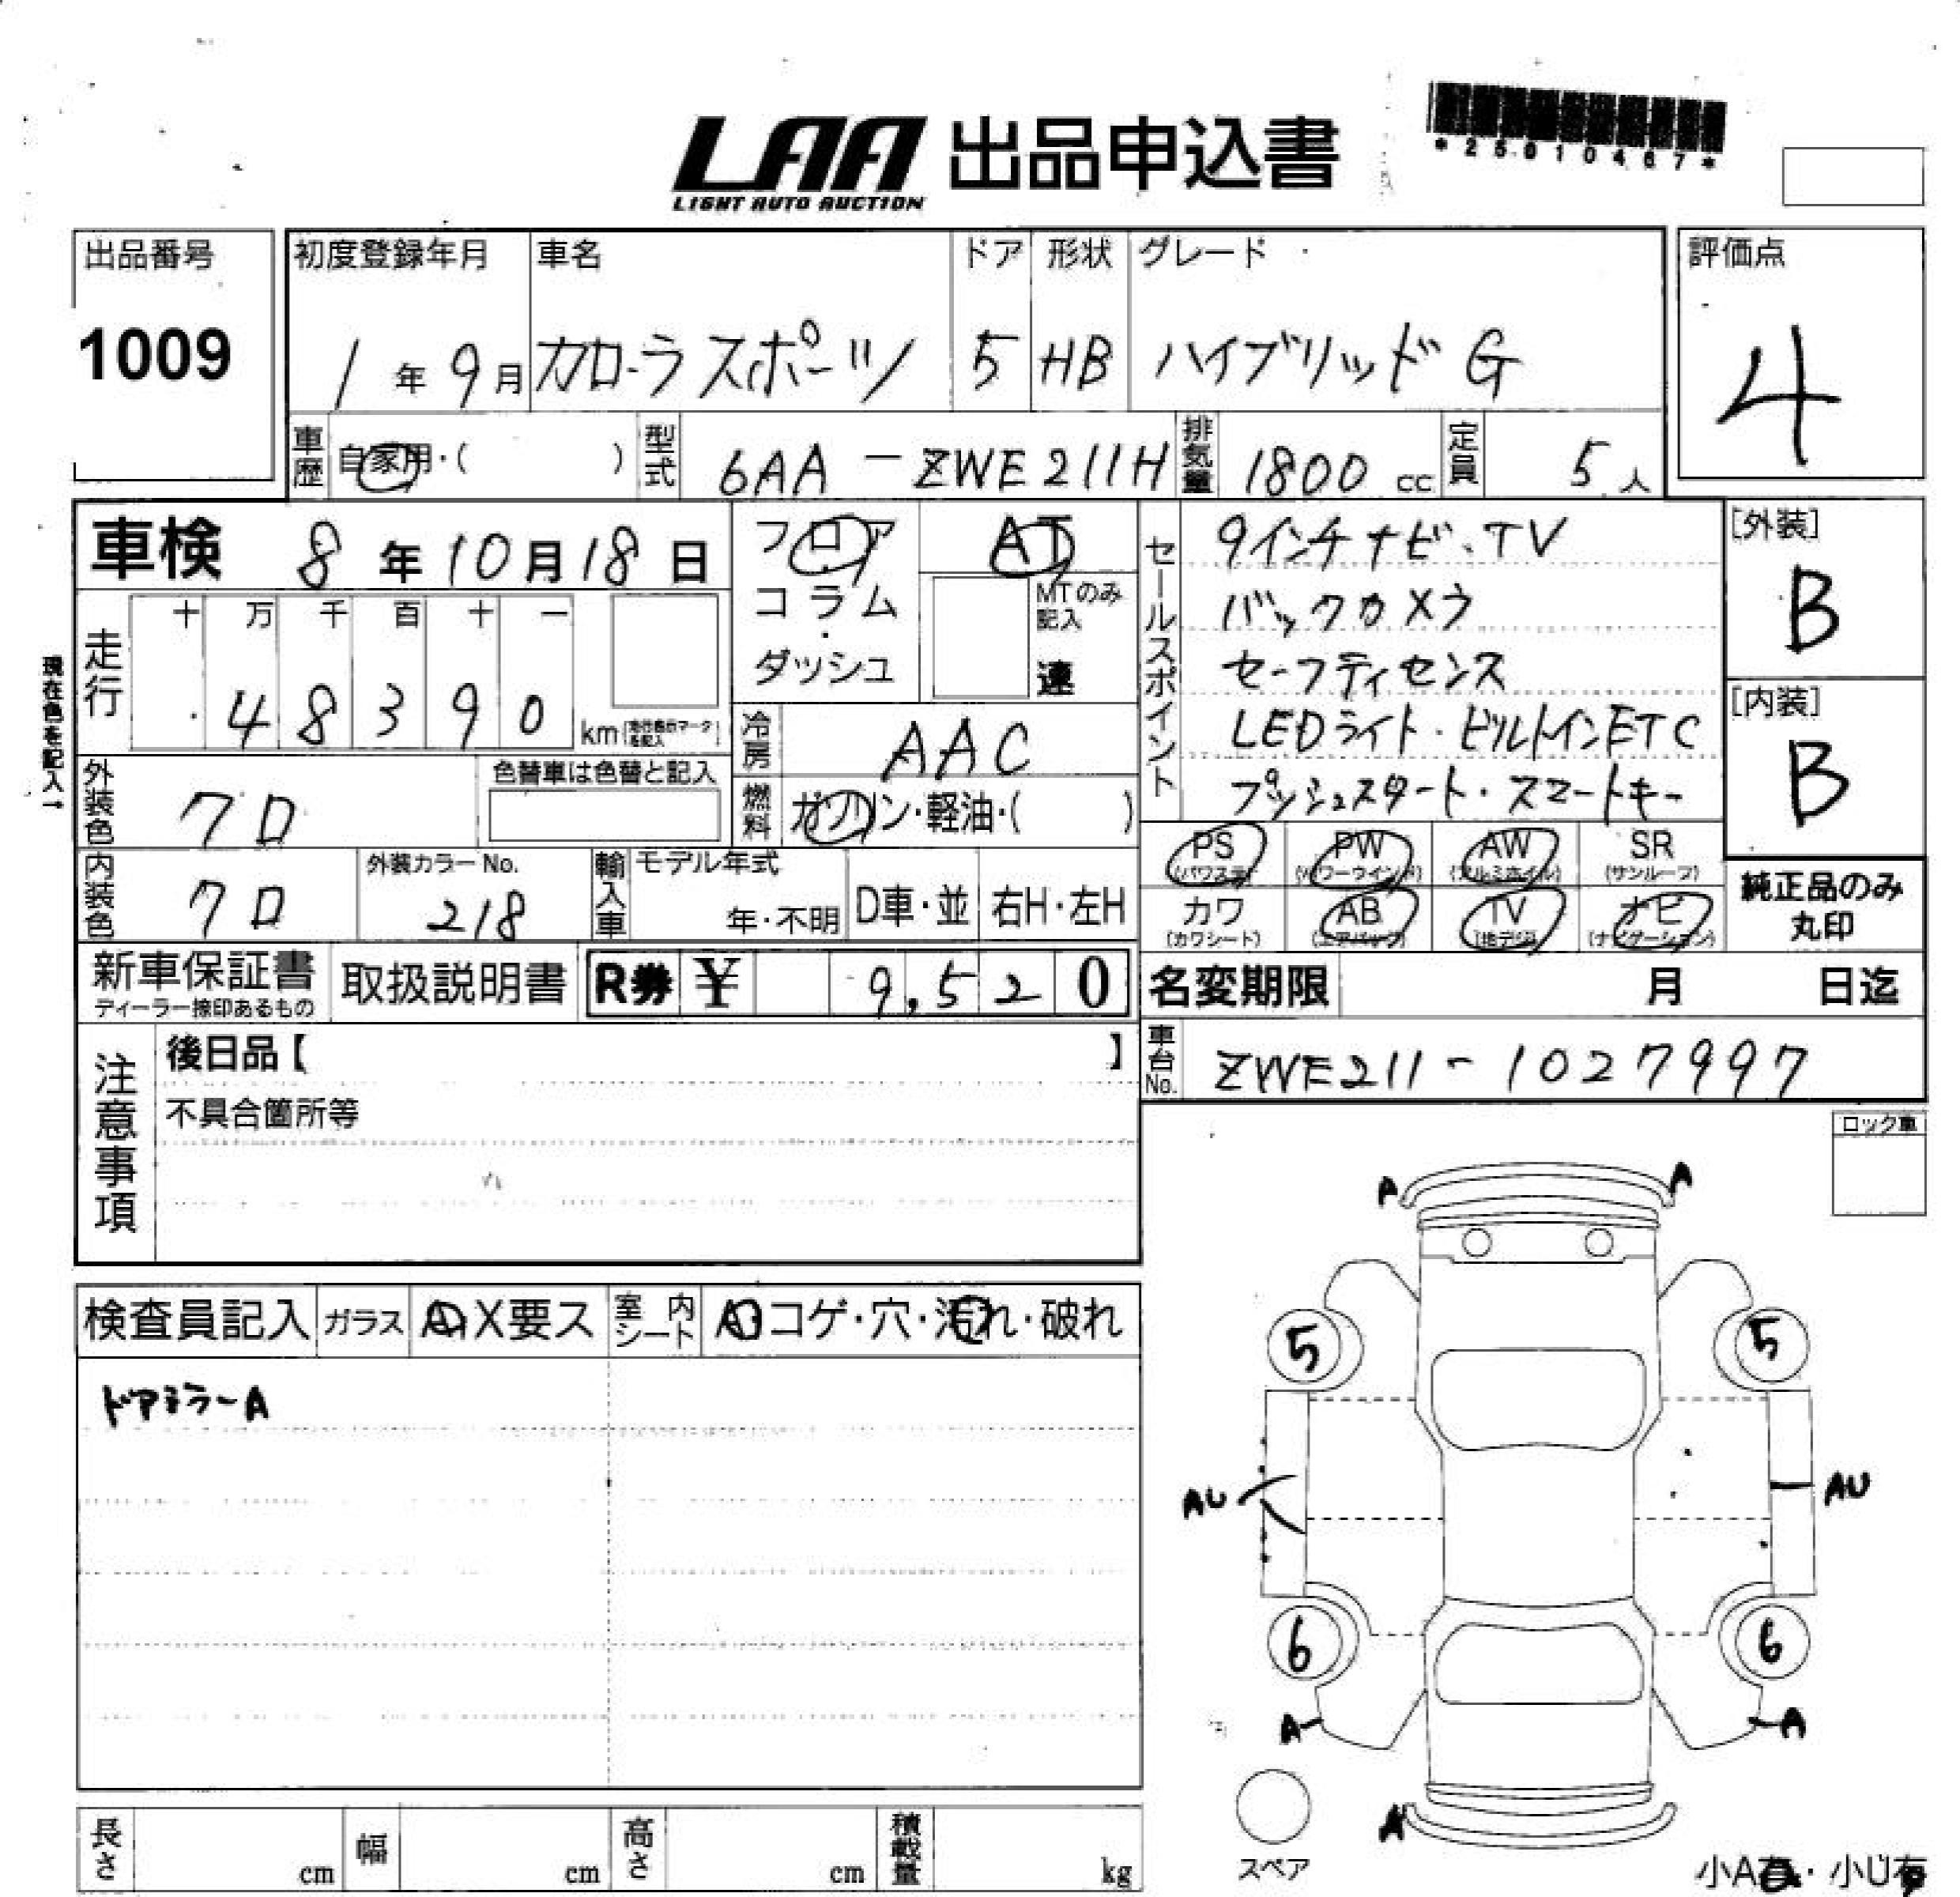 LAA 出品申込書
LIGHT AUTO AUCTION
*25010467*
出品番号
1009
初度登録年月 車名 ドア 形状 グレード
1年9月 カローラスポーツ 5 HB ハイブリッド G
評価点
4
車歴 自家用・( ) 型式 6AA-ZWE211H 排気量 1800cc 定員 5人
車検 8年10月18日
フロア AT
コラム・ダッシュ
MTのみ記入
速
セールスポイント
9インチナビ・TV
バックカメラ
セーフティセンス
LEDライト・ビルトインETC
プッシュスタート・スマートキー
[外装]
B
[内装]
B
現在色を記入→
走行 十 万 千 百 十 一
48390 km
冷房 AAC
外装色 クロ
色替車は色替と記入
燃料 ガソリン・軽油・( )
内装色 クロ
外装カラーNo.
218
輸入車 モデル年式
年・不明 D車・並 右H・左H
PS (パワステ) PW (パワーウインド) AW (アルミホイル) SR (サンルーフ)
カワ (カワシート) AB (エアバッグ) TV (地デジ) ナビ (ナビゲーション)
純正品のみ
丸印
新車保証書
ディーラー捺印あるもの
取扱説明書 R券 ¥ 9,520
名変期限 月 日迄
注意事項
後日品【 】
不具合箇所等
車台No. ZWE211-1027997
ロック車
検査員記入 ガラス A・X要ス 室内シート A・コゲ・穴・汚れ・破れ
ドアミラーA
A A
5 5
AU AU
6 6
A A
A
スペア
小A有・小U有
長さ cm 幅 cm 高さ cm 積載量 kg